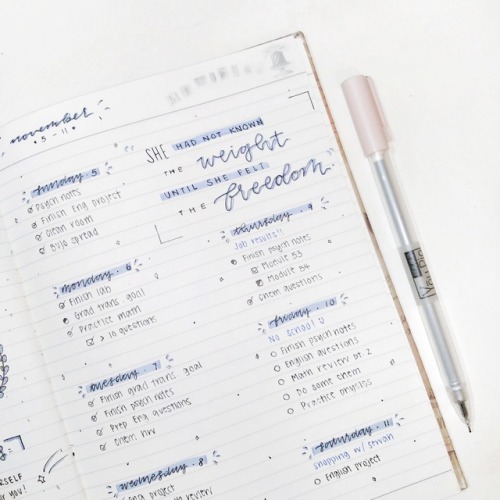 november
5 - 11
SHE HAD NOT KNOWN
THE weight
UNTIL SHE FELT
THE freedom
sunday · 5
Psych notes
Finish Eng project
Clean room
Bujo spread
monday · 6
Finish lab
Grad trans. goal
Practice math
> 10 questions
tuesday · 7
Finish grad trans goal
Finish psych notes
Prep Eng questions
Chem hw
wednesday · 8
project
review
thursday · 9
Job results!!
Finish psych notes
Module 53
Module 54
Chem questions
friday · 10
No school
Finish psych notes
English questions
Math review pt. 2
Do some chem
Practice physics
saturday · 11
shopping w/
English project